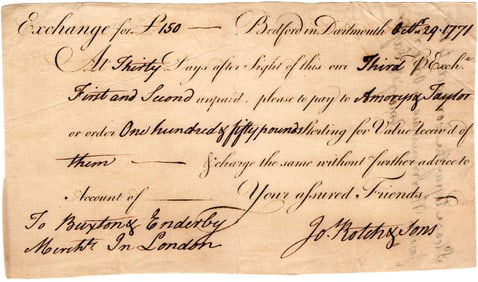 Exchange for £150 — Bedford in Dartmouth Octr. 29 1771
At Thirty Days after Sight of this our Third P Excha
First and Second unpaid, please to pay to Amorys & Taylor
or order One hundred & fifty pounds Sterling for Value received of
them — & charge the same without further advice to
Account of — Your assured Friends
To Buxton & Enderby
Merchts. In London
Jos. Rotch & Sons